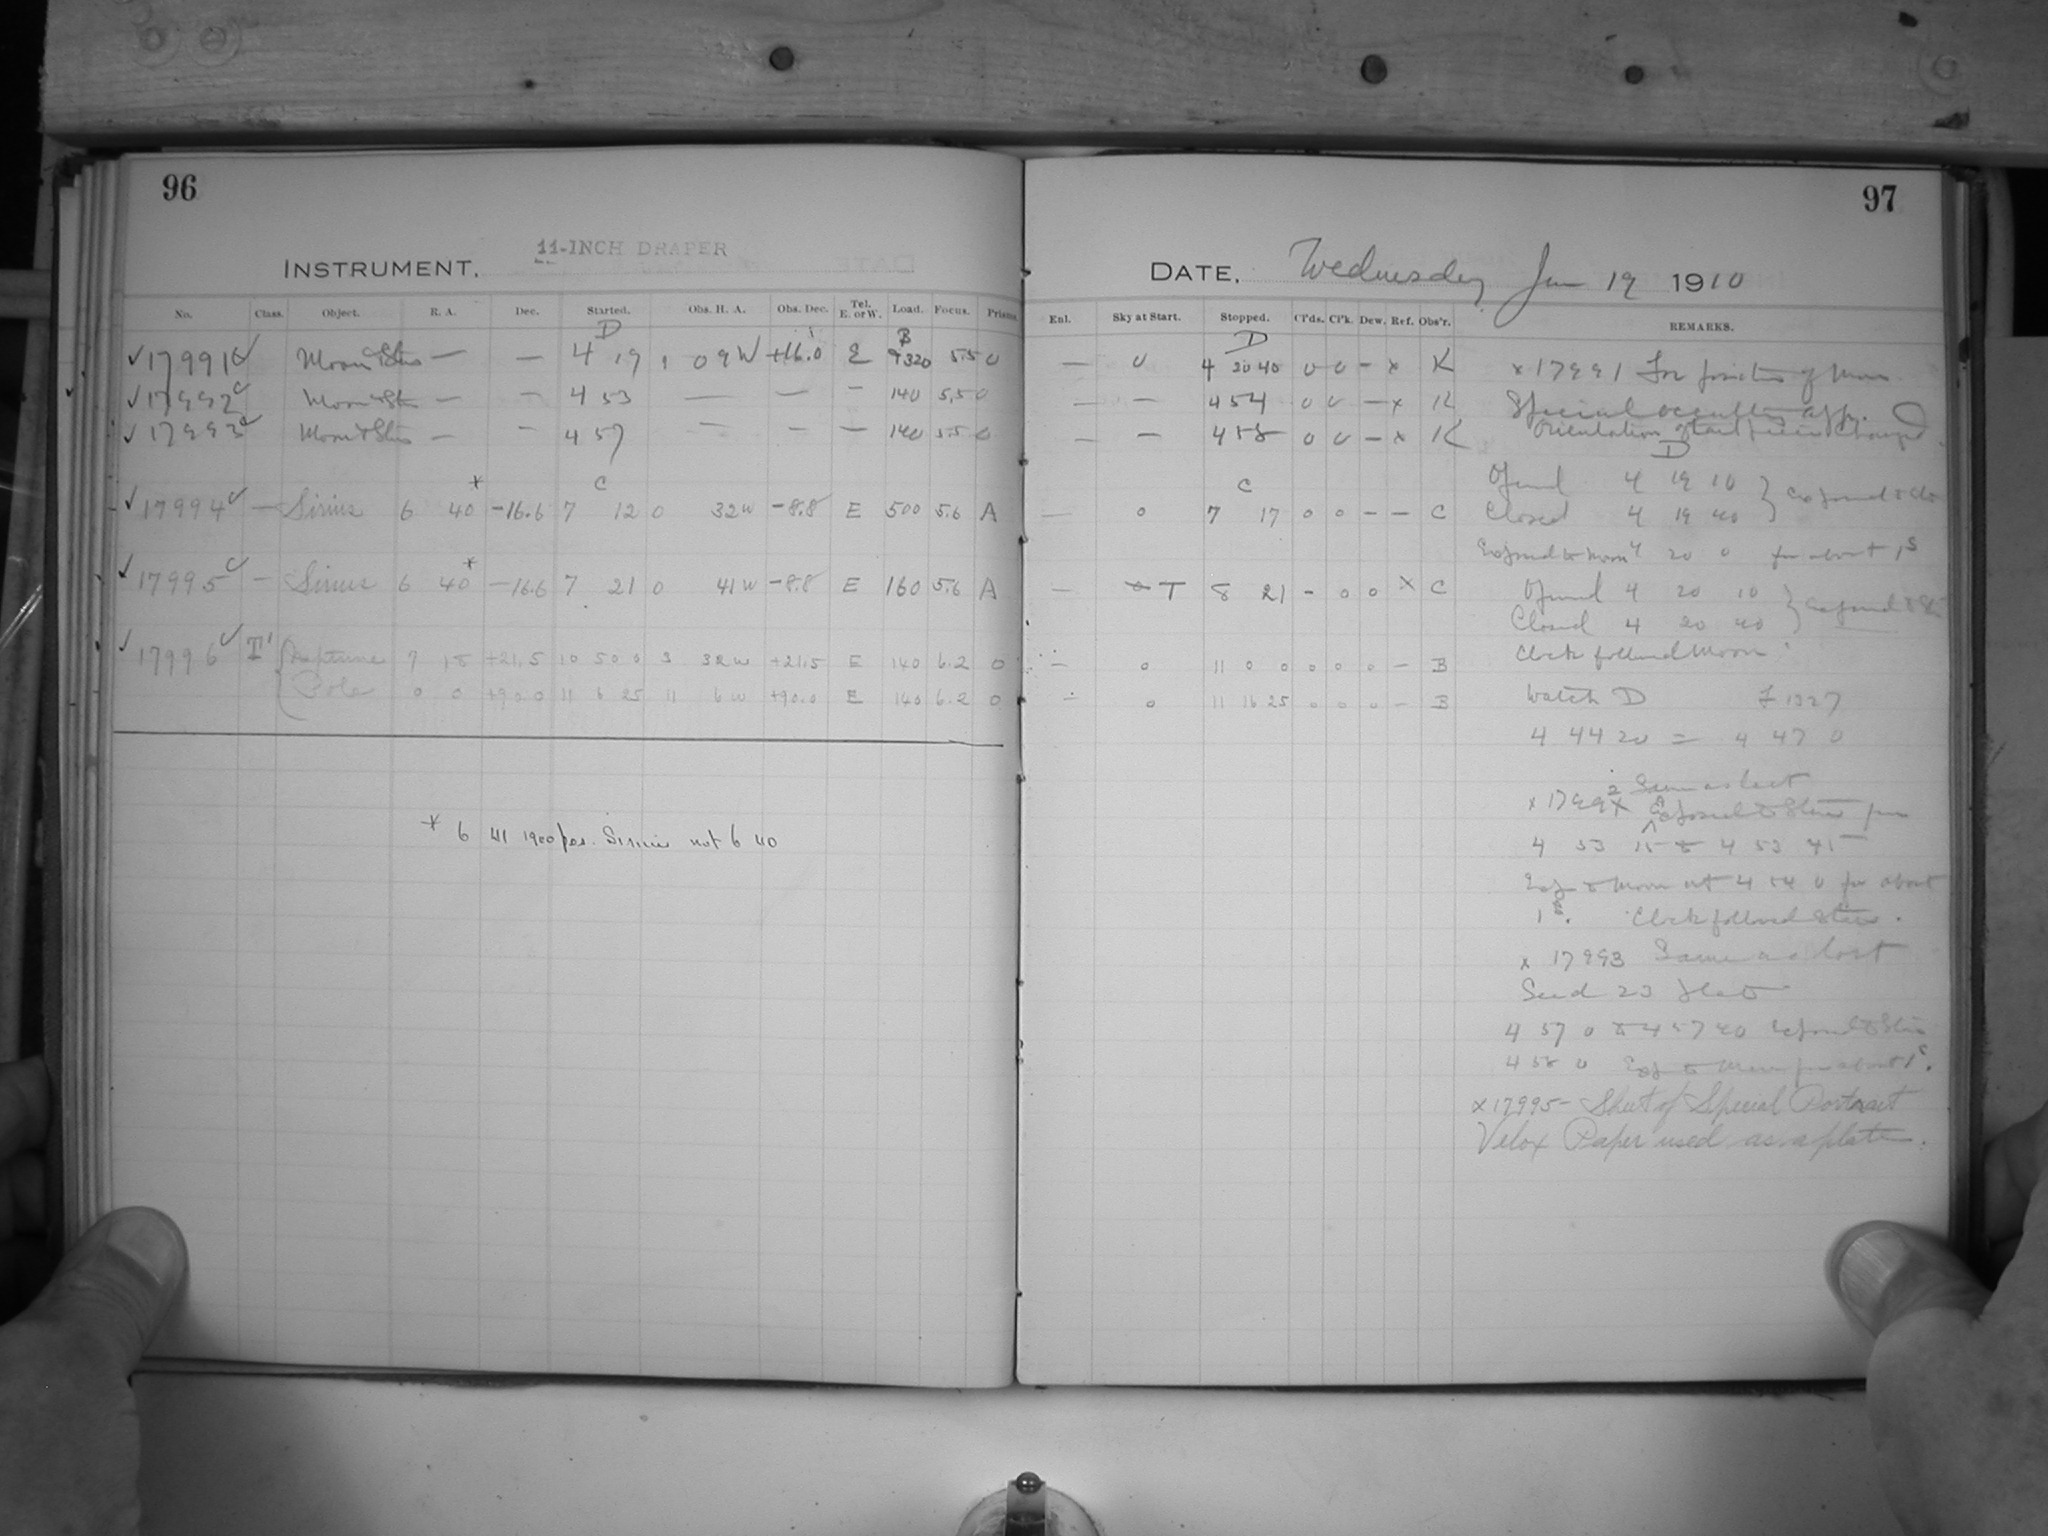 96
INSTRUMENT. 11-INCH DRAPER
No. Class. Object. R. A. Dec. Started. Obs. H. A. Obs. Dec. Tel. E. or W. Load. Focus. Prisms.
D B
17991 Moon & Stars — — 4 19 1 09 W +16.0 E 320 5.5 0
17992 Moon & Stars — — 4 53 — — — 140 5.5 0
17993 Moon & Stars — — 4 57 — — — 140 5.5 0
* C
17994 — Sirius 6 40 -16.6 7 12 0 32 W -8.8 E 500 5.6 A
*
17995 — Sirius 6 40 -16.6 7 21 0 41 W -8.8 E 160 5.6 A
17996 I' Neptune 7 18 +21.5 10 50 0 3 32 W +21.5 E 140 6.2 0
Pole 0 0 +90.0 11 6 25 11 6 W +90.0 E 140 6.2 0
* 6 41 1900 pos. Sirius not 6 40
97
DATE, Wednesday Jan 19 1910
Enl. Sky at Start. Stopped. Cl'ds. Cl'k. Dew. Ref. Obs'r. REMARKS.
D
— 0 4 20 40 0 0 — x K
— — 4 54 0 0 — x K
— — 4 58 0 0 — x K
C
— 0 7 17 0 0 — — C
— T 8 21 - 0 0 x C
— 0 11 0 0 0 0 0 — B
— 0 11 16 25 0 0 0 — B
x 17991 For position of Moon
Special occulting app.
Orientation of
D
Opened 4 19 10
Closed 4 19 40
Exposed to Moon 4 20 0 for about 1s
Opened 4 20 10
Closed 4 20 40
Clock followed Moon
Watch D F 1327
4 44 20 = 4 47 0
x 17992 Same as last
Exposed to Stars from
4 53 15 to 4 53 45
Exp to Moon at 4 54 0 for about
1s. Clock followed Stars.
x 17993 Same as last
Seed 23 Plate
4 57 0 to 4 57 40 Exposed to Stars
4 58 0 Exp to Moon for about 1s.
x 17995 - Sheet of Special Portrait
Velox Paper used as a plate.